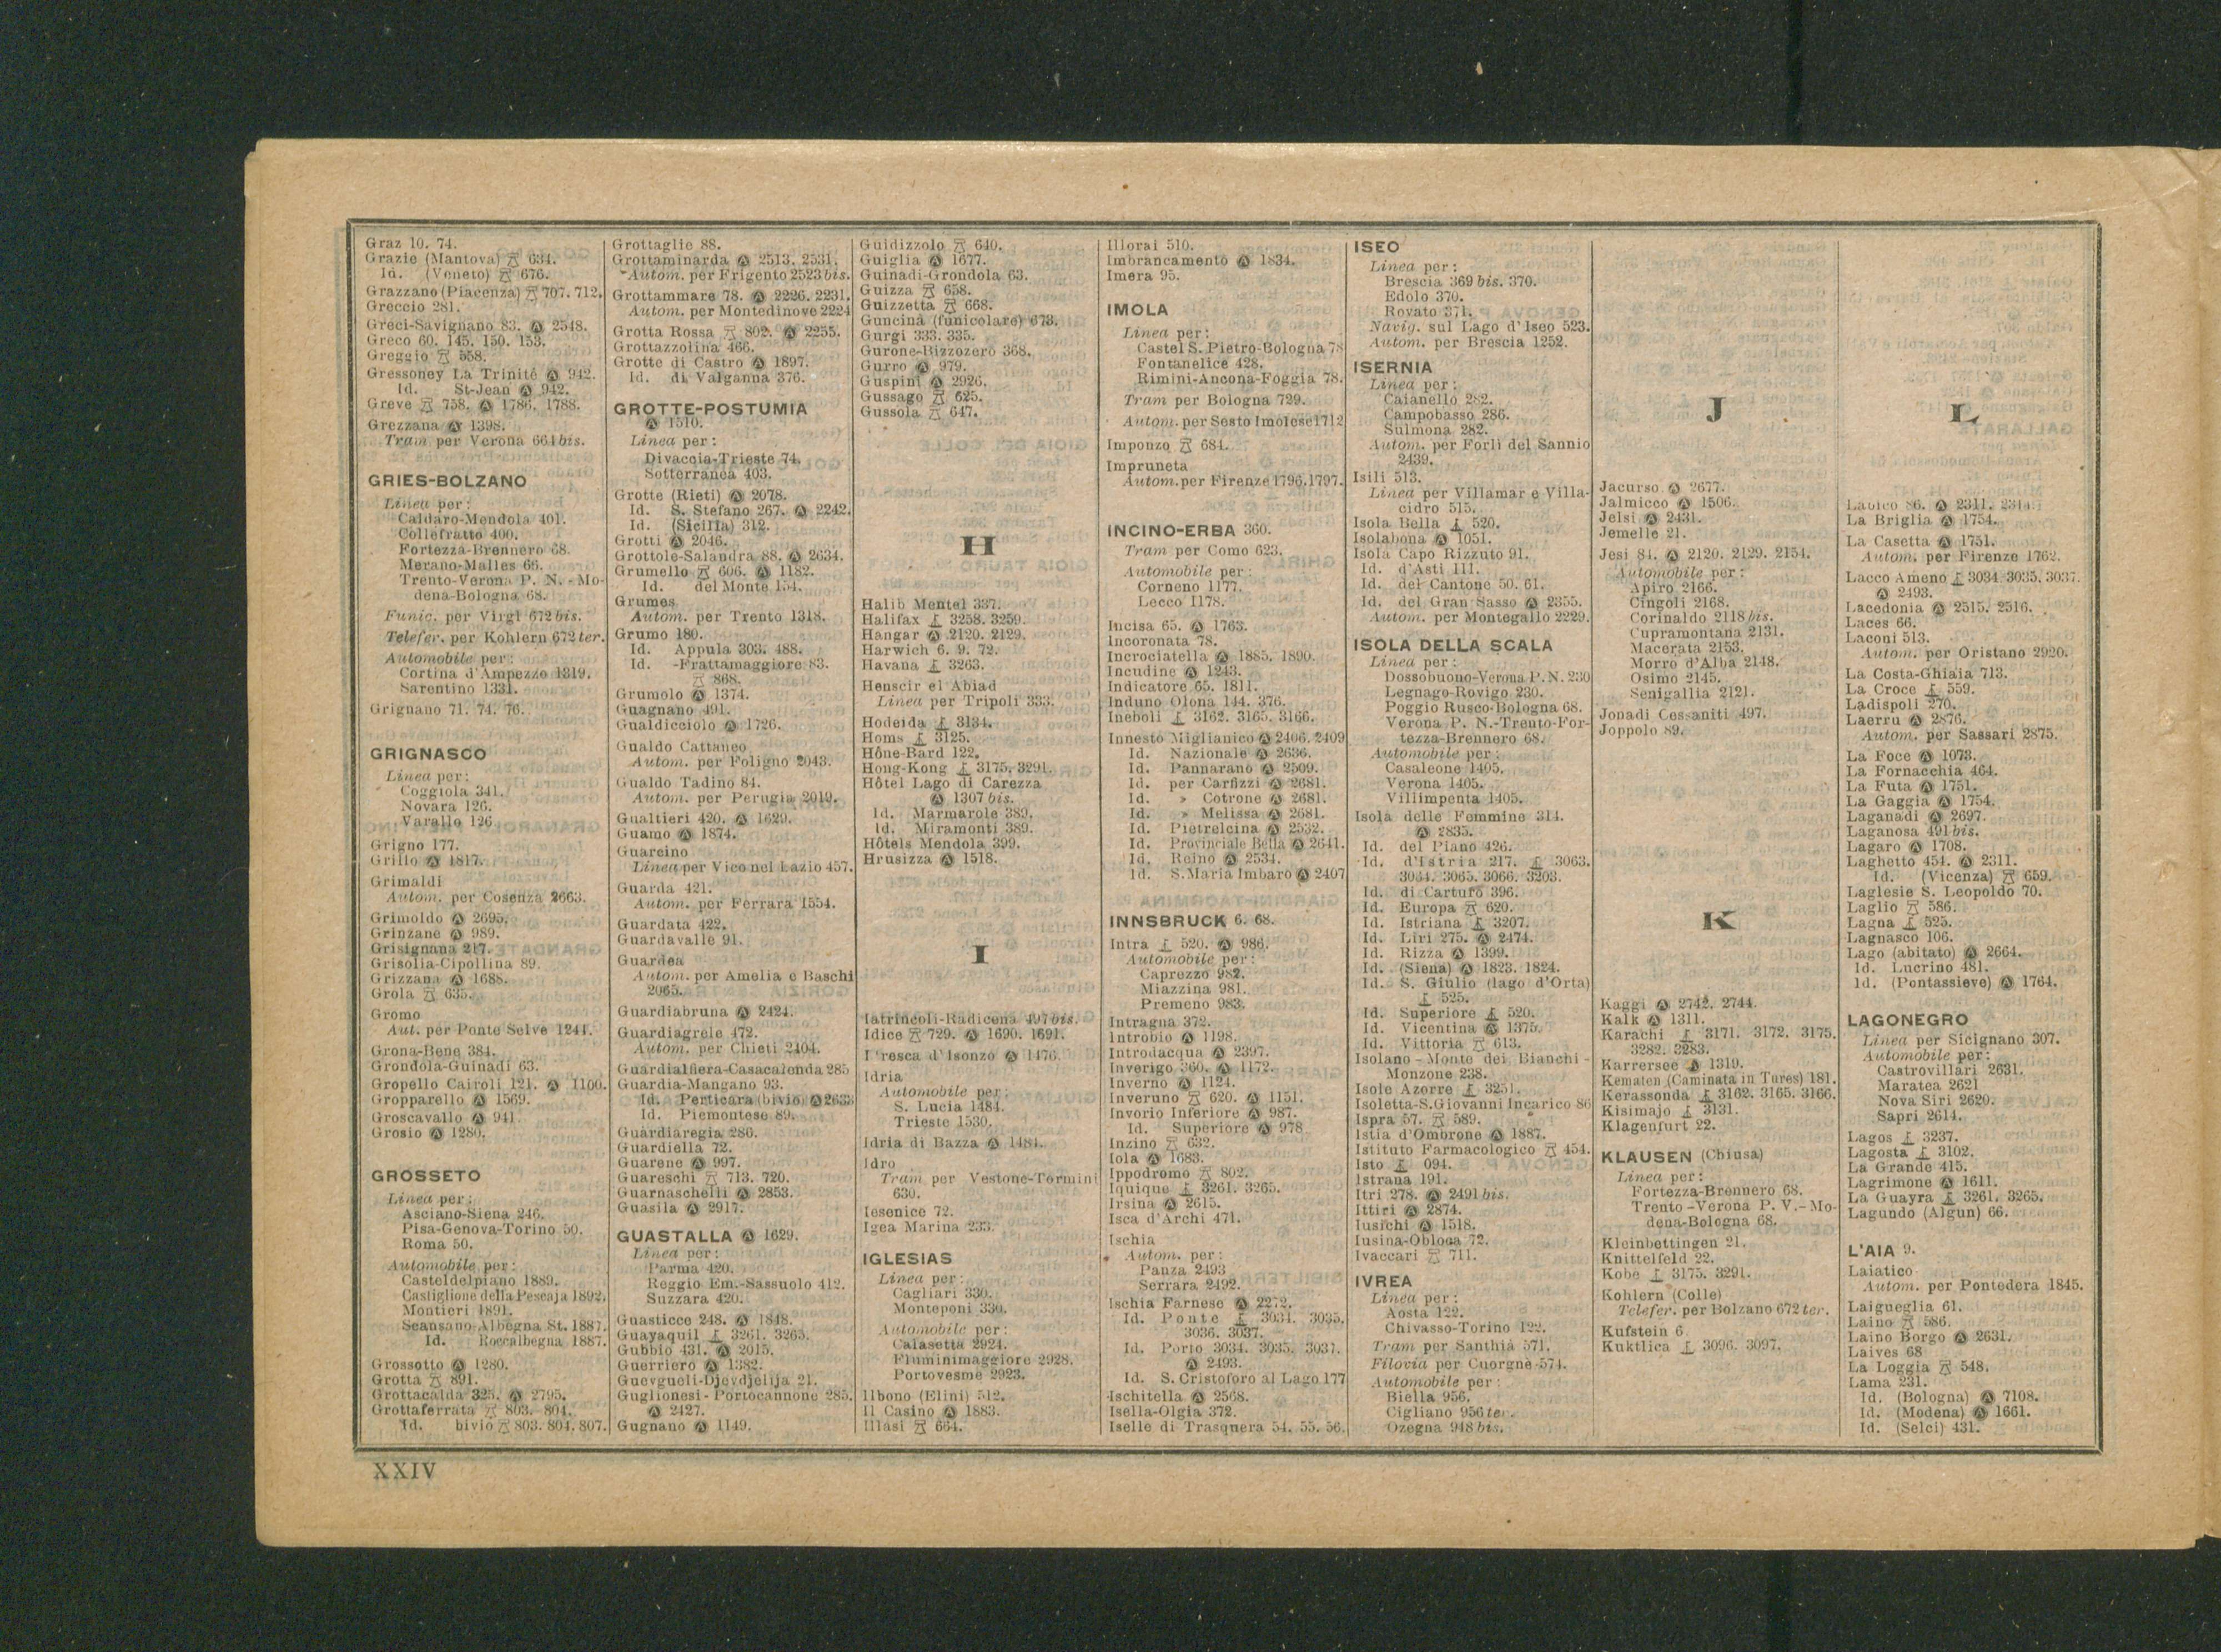 Graz 10. 74.
Grazie (Mantova) 634.
Id. (Veneto) 676.
Grazzano (Piacenza) 707. 712.
Greccio 281.
Greci-Savignano 83. Ⓐ 2548.
Greco 60. 145. 150. 153.
Greggio 558.
Gressoney La Trinité Ⓐ 942.
Id. St-Jean Ⓐ 942.
Greve 758. Ⓐ 1786. 1788.
Grezzana Ⓐ 1398.
Tram per Verona 664 bis.
GRIES-BOLZANO
Linea per:
Caldaro-Mendola 401.
Collefratto 400.
Fortezza-Brennero 68.
Merano-Malles 66.
Trento-Verona P. N.-Mo-
dena-Bologna 68.
Funic. per Virgl 672 bis.
Telefer. per Kohlern 672 ter.
Automobile per:
Cortina d'Ampezzo 1319.
Sarentino 1331.
Grignano 71. 74. 76.
GRIGNASCO
Linea per:
Coggiola 341.
Novara 126.
Varallo 126.
Grigno 177.
Grillo Ⓐ 1817.
Grimaldi
Autom. per Cosenza 2663.
Grimoldo Ⓐ 2695.
Grinzane Ⓐ 989.
Grisignana 217.
Grisolia-Cipollina 89.
Grizzana Ⓐ 1688.
Grola 635.
Gromo
Aut. per Ponte Selve 1244.
Grona-Bene 384.
Grondola-Guinadi 63.
Gropello Cairoli 121. Ⓐ 1100.
Gropparello Ⓐ 1569.
Groscavallo Ⓐ 941.
Grosio Ⓐ 1280.
GROSSETO
Linea per:
Asciano-Siena 246.
Pisa-Genova-Torino 50.
Roma 50.
Automobile per:
Casteldelpiano 1889.
Castiglione della Pescaja 1892.
Montieri 1891.
Scansano-Albegna St. 1887.
Id. Roccalbegna 1887.
Grossotto Ⓐ 1280.
Grotta 891.
Grottacalda 325. Ⓐ 2795.
Grottaferrata 803. 804.
Id. bivio 803. 804. 807.
Grottaglie 88.
Grottaminarda Ⓐ 2513. 2531.
Autom. per Frigento 2523 bis.
Grottammare 78. Ⓐ 2226. 2231.
Autom. per Montedinove 2224
Grotta Rossa 802. Ⓐ 2255.
Grottazzolina 466.
Grotte di Castro Ⓐ 1897.
Id. di Valganna 376.
GROTTE-POSTUMIA
Ⓐ 1510.
Linea per:
Divaccia-Trieste 74.
Sotterranea 403.
Grotte (Rieti) Ⓐ 2078.
Id. S. Stefano 267. Ⓐ 2242.
Id. (Sicilia) 312.
Grotti Ⓐ 2046.
Grottole-Salandra 88. Ⓐ 2634.
Grumello 606. Ⓐ 1182.
Id. del Monte 154.
Grumes
Autom. per Trento 1318.
Grumo 180.
Id. Appula 303. 488.
Id. -Frattamaggiore 83.
868.
Grumolo Ⓐ 1374.
Guagnano 491.
Gualdicciolo Ⓐ 1726.
Gualdo Cattaneo
Autom. per Foligno 2043.
Gualdo Tadino 84.
Autom. per Perugia 2019.
Gualtieri 420. Ⓐ 1629.
Guamo Ⓐ 1874.
Guarcino
Linea per Vico nel Lazio 457.
Guarda 421.
Autom. per Ferrara 1554.
Guardata 422.
Guardavalle 91.
Guardea
Autom. per Amelia e Baschi
2065.
Guardiabruna Ⓐ 2424.
Guardiagrele 472.
Autom. per Chieti 2404.
Guardialfiera-Casacalenda 285
Guardia-Mangano 93.
Id. Perticara (bivio) Ⓐ 2633
Id. Piemontese 89.
Guardiaregia 286.
Guardiella 72.
Guarene Ⓐ 997.
Guareschi 713. 720.
Guarnaschelli Ⓐ 2853.
Guasila Ⓐ 2917.
GUASTALLA Ⓐ 1629.
Linea per:
Parma 420.
Reggio Em.-Sassuolo 412.
Suzzara 420.
Guasticce 248. Ⓐ 1848.
Guayaquil 3261. 3265.
Gubbio 431. Ⓐ 2015.
Guerriero Ⓐ 1382.
Guevgueli-Djevdjelija 21.
Guglionesi-Portocannone 285.
Ⓐ 2427.
Gugnano Ⓐ 1149.
Guidizzolo 640.
Guiglia Ⓐ 1677.
Guinadi-Grondola 63.
Guizza 658.
Guizzetta 668.
Guncina (funicolare) 673.
Gurgi 333. 335.
Gurone-Bizzozero 368.
Gurro Ⓐ 979.
Guspini Ⓐ 2926.
Gussago 625.
Gussola 647.
H
Halib Mentel 337.
Halifax 3258. 3259.
Hangar Ⓐ 2120. 2129.
Harwich 6. 9. 72.
Havana 3263.
Henscir el Abiad
Linea per Tripoli 333.
Hodeida 3134.
Homs 3125.
Hône-Bard 122.
Hong-Kong 3175. 3291.
Hôtel Lago di Carezza
Ⓐ 1307 bis.
Id. Marmarole 389.
Id. Miramonti 389.
Hôtels Mendola 399.
Hrusizza Ⓐ 1518.
I
Iatrincoli-Radicena 497 bis.
Idice 729. Ⓐ 1690. 1691.
d'Isonzo Ⓐ 1476.
Idria
Automobile per:
S. Lucia 1484.
Trieste 1530.
Idria di Bazza Ⓐ 1484.
Idro
Tram per Vestone-Tormini
630.
Iesenice 72.
Igea Marina 233.
IGLESIAS
Linea per:
Cagliari 330.
Monteponi 330.
Automobile per:
Calasetta 2924.
Fluminimaggiore 2928.
Portovesme 2923.
Ilbono (Elini) 512.
Il Casino Ⓐ 1883.
Illasi 664.
Illorai 510.
Imbrancamento Ⓐ 1834.
Imera 95.
IMOLA
Linea per:
Castel S. Pietro-Bologna 78
Fontanelice 428.
Rimini-Ancona-Foggia 78.
Tram per Bologna 729.
Autom. per Sesto Imolese 1712
Imponzo 684.
Impruneta
Autom. per Firenze 1796. 1797.
INCINO-ERBA 360.
Tram per Como 623.
Automobile per:
Corneno 1177.
Lecco 1178.
Incisa 65. Ⓐ 1763.
Incoronata 78.
Incrociatella Ⓐ 1885. 1890.
Incudine Ⓐ 1243.
Indicatore 65. 1811.
Induno Olona 144. 376.
Ineboli 3162. 3165. 3166.
Innesto Miglianico Ⓐ 2406. 2409
Id. Nazionale Ⓐ 2636.
Id. Pannarano Ⓐ 2509.
Id. per Carfizzi Ⓐ 2681.
Id. » Cotrone Ⓐ 2681.
Id. » Melissa Ⓐ 2681.
Id. Pietrelcina Ⓐ 2532.
Id. Provinciale Bella Ⓐ 2641.
Id. Reino Ⓐ 2534.
Id. S. Maria Imbaro Ⓐ 2407
INNSBRUCK 6. 68.
Intra 520. Ⓐ 986.
Automobile per:
Caprezzo 982.
Miazzina 981.
Premeno 983.
Intragna 372.
Introbio Ⓐ 1198.
Introdacqua Ⓐ 2397.
Inverigo 360. Ⓐ 1172.
Inverno Ⓐ 1124.
Inveruno 620. Ⓐ 1151.
Invorio Inferiore Ⓐ 987.
Id. Superiore Ⓐ 978
Inzino 632.
Iola Ⓐ 1683.
Ippodromo 802.
Iquique 3261. 3265.
Irsina Ⓐ 2615.
Isca d'Archi 471.
Ischia
Autom. per:
Panza 2493
Serrara 2492.
Ischia Farnese Ⓐ 2272.
Id. Ponte 3034. 3035.
3036. 3037.
Id. Porto 3034. 3035. 3037.
Ⓐ 2493.
Id. S. Cristoforo al Lago 177
Ischitella Ⓐ 2568.
Isella-Olgia 372.
Iselle di Trasquera 54. 55. 56.
ISEO
Linea per:
Brescia 369 bis. 370.
Edolo 370.
Rovato 371.
Navig. sul Lago d'Iseo 523.
Autom. per Brescia 1252.
ISERNIA
Linea per:
Caianello 282.
Campobasso 286.
Sulmona 282.
Autom. per Forlì del Sannio
2439.
Isili 513.
Linea per Villamar e Villa-
cidro 515.
Isola Bella 520.
Isolabona Ⓐ 1051.
Isola Capo Rizzuto 91.
Id. d'Asti 111.
Id. del Cantone 50. 61.
Id. del Gran Sasso Ⓐ 2355.
Autom. per Montegallo 2229.
ISOLA DELLA SCALA
Linea per:
Dossobuono-Verona P. N. 230
Legnago-Rovigo 230.
Poggio Rusco-Bologna 68.
Verona P. N.-Trento-For-
tezza-Brennero 68.
Automobile per:
Casaleone 1405.
Verona 1405.
Villimpenta 1405.
Isola delle Femmine 314.
Ⓐ 2835.
Id. del Piano 426.
Id. d'Istria 217. 3063.
3064. 3065. 3066. 3203.
Id. di Carturo 396.
Id. Europa 620.
Id. Istriana 3207.
Id. Liri 275. Ⓐ 2474.
Id. Rizza Ⓐ 1399.
Id. (Siena) Ⓐ 1823. 1824.
Id. S. Giulio (lago d'Orta)
525.
Id. Superiore 520.
Id. Vicentina Ⓐ 1375.
Id. Vittoria 613.
Isolano-Monte dei Bianchi-
Monzone 238.
Isole Azorre 3251.
Isoletta-S. Giovanni Incarico 86
Ispra 57. 589.
Istia d'Ombrone Ⓐ 1887.
Istituto Farmacologico 454.
Isto 094.
Istrana 191.
Itri 278. Ⓐ 2491 bis.
Ittiri Ⓐ 2874.
Iusichi Ⓐ 1518.
Iusina-Obloca 72.
Ivaccari 711.
IVREA
Linea per:
Aosta 122.
Chivasso-Torino 122.
Tram per Santhià 571.
Filovia per Cuorgnè 574.
Automobile per:
Biella 956.
Cigliano 956 ter.
Ozegna 948 bis.
J
Jacurso Ⓐ 2677.
Jalmicco Ⓐ 1506.
Jelsi Ⓐ 2431.
Jemelle 21.
Jesi 84. Ⓐ 2120. 2129. 2154.
Automobile per:
Apiro 2166.
Cingoli 2168.
Corinaldo 2118 bis.
Cupramontana 2131.
Macerata 2153.
Morro d'Alba 2148.
Osimo 2145.
Senigallia 2121.
Jonadi Cessaniti 497.
Joppolo 89.
K
Kaggi Ⓐ 2742. 2744.
Kalk Ⓐ 1311.
Karachi 3171. 3172. 3175.
3282. 3283.
Karrersee Ⓐ 1319.
Kematen (Caminata in Tures) 181.
Kerassonda 3162. 3165. 3166.
Kisimajo 3131.
Klagenfurt 22.
KLAUSEN (Chiusa)
Linea per:
Fortezza-Brennero 68.
Trento-Verona P. V.-Mo-
dena-Bologna 68.
Kleinbettingen 21.
Knittelfeld 22.
Kobe 3175. 3291.
Kohlern (Colle)
Telefer. per Bolzano 672 ter.
Kufstein 6
Kuktlica 3096. 3097.
L
Labico 86. Ⓐ 2311.
La Briglia Ⓐ 1754.
La Casetta Ⓐ 1751.
Autom. per Firenze 1762.
Lacco Ameno 3034. 3035. 3037.
Ⓐ 2493.
Lacedonia Ⓐ 2515. 2516.
Laces 66.
Laconi 513.
Autom. per Oristano 2920.
La Costa-Ghiaia 713.
La Croce 559.
Ladispoli 270.
Laerru Ⓐ 2876.
Autom. per Sassari 2875.
La Foce Ⓐ 1073.
La Fornacchia 464.
La Futa Ⓐ 1751.
La Gaggia Ⓐ 1754.
Laganadi Ⓐ 2697.
Laganosa 491 bis.
Lagaro Ⓐ 1708.
Laghetto 454. Ⓐ 2311.
Id. (Vicenza) 659.
Laglesie S. Leopoldo 70.
Laglio 586.
Lagna 525.
Lagnasco 106.
Lago (abitato) Ⓐ 2664.
Id. Lucrino 481.
Id. (Pontassieve) Ⓐ 1764.
LAGONEGRO
Linea per Sicignano 307.
Automobile per:
Castrovillari 2631.
Maratea 2621
Nova Siri 2620.
Sapri 2614.
Lagos 3237.
Lagosta 3102.
La Grande 415.
Lagrimone Ⓐ 1611.
La Guayra 3261. 3265.
Lagundo (Algun) 66.
L'AIA 9.
Laiatico
Autom. per Pontedera 1845.
Laigueglia 61.
Laino 586.
Laino Borgo Ⓐ 2631.
Laives 68
La Loggia 548.
Lama 231.
Id. (Bologna) Ⓐ 7108.
Id. (Modena) Ⓐ 1661.
Id. (Selci) 431.
XXIV